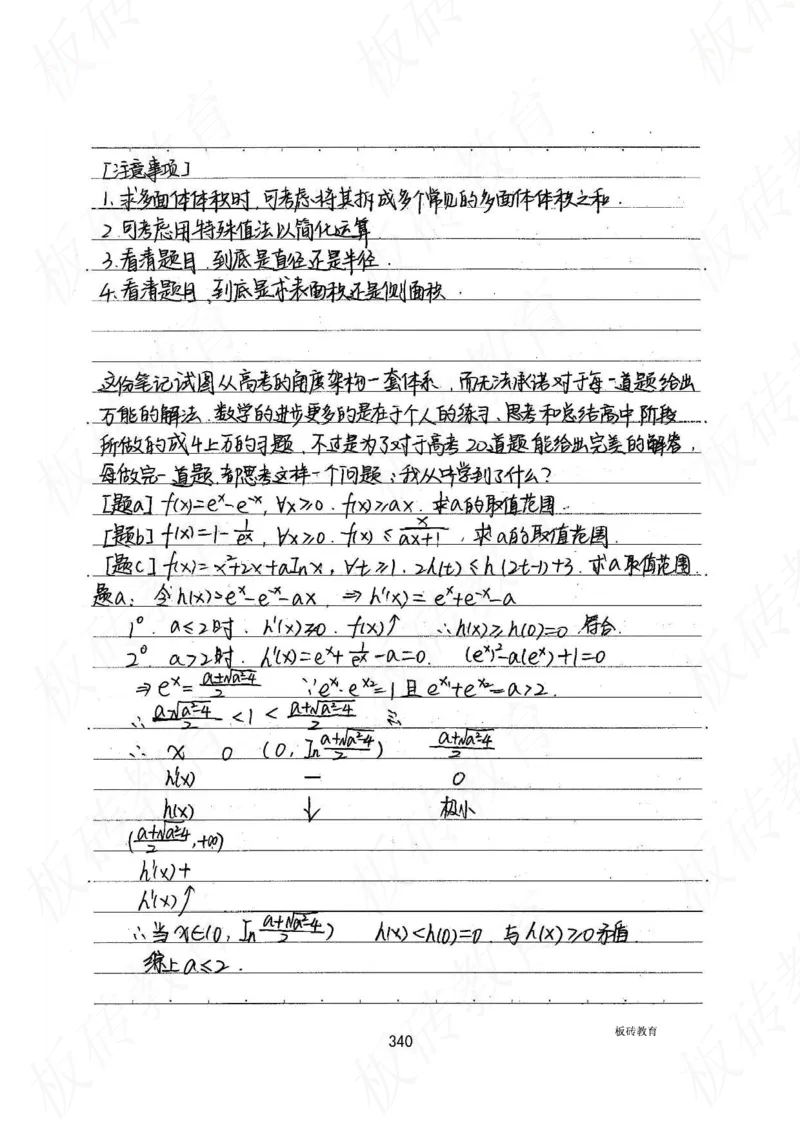 [注意事项]
1.求多面体体积时,可考虑将其拆成多个常见的多面体体积之和.
2.可考虑用特殊值法以简化运算
3.看清题目,到底是直径还是半径.
4.看清题目,到底是求表面积还是侧面积.
这份笔记试图从高考的角度架构一套体系,而无法承诺对于每一道题给出
万能的解法.数学的进步更多的是在于个人的练习、思考和总结高中阶段
所做的成千上万的习题,不过是为了对于高考20道题能给出完美的解答,
每做完一道题,都思考这样一个问题:我从中学到了什么?
[题a] f(x)=e^x-e^-x, ∀x≥0. f(x)≥ax. 求a的取值范围.
[题b] f(x)=1-1/e^x, ∀x≥0. f(x)≤x/(ax+1), 求a的取值范围.
[题c] f(x)=x²+2x+alnx, ∀t≥1, 2h(t)≤h(2t-1)+3. 求a取值范围.
题a: 令h(x)=e^x-e^-x-ax, ⇒h'(x)=e^x+e^-x-a
1°. a≤2时. h'(x)≥0. f(x)↑ ∴h(x)≥h(0)=0 符合.
2°. a>2时. h'(x)=e^x+1/e^x-a=0. (e^x)²-a(e^x)+1=0
⇒e^x=(a±√a²-4)/2 ∵e^x₁·e^x₂=1且e^x₁+e^x₂=a>2.
∴(a-√a²-4)/2<1<(a+√a²-4)/2
∴ x 0 (0, ln(a+√a²-4)/2) (a+√a²-4)/2
h'(x) — 0
h(x) ↓ 极小
((a+√a²-4)/2,+∞)
h'(x)+
h'(x)↑
∴当x∈(0, ln(a+√a²-4)/2) h(x)<h(0)=0. 与h(x)≥0矛盾.
综上a≤2.
340
板砖教育